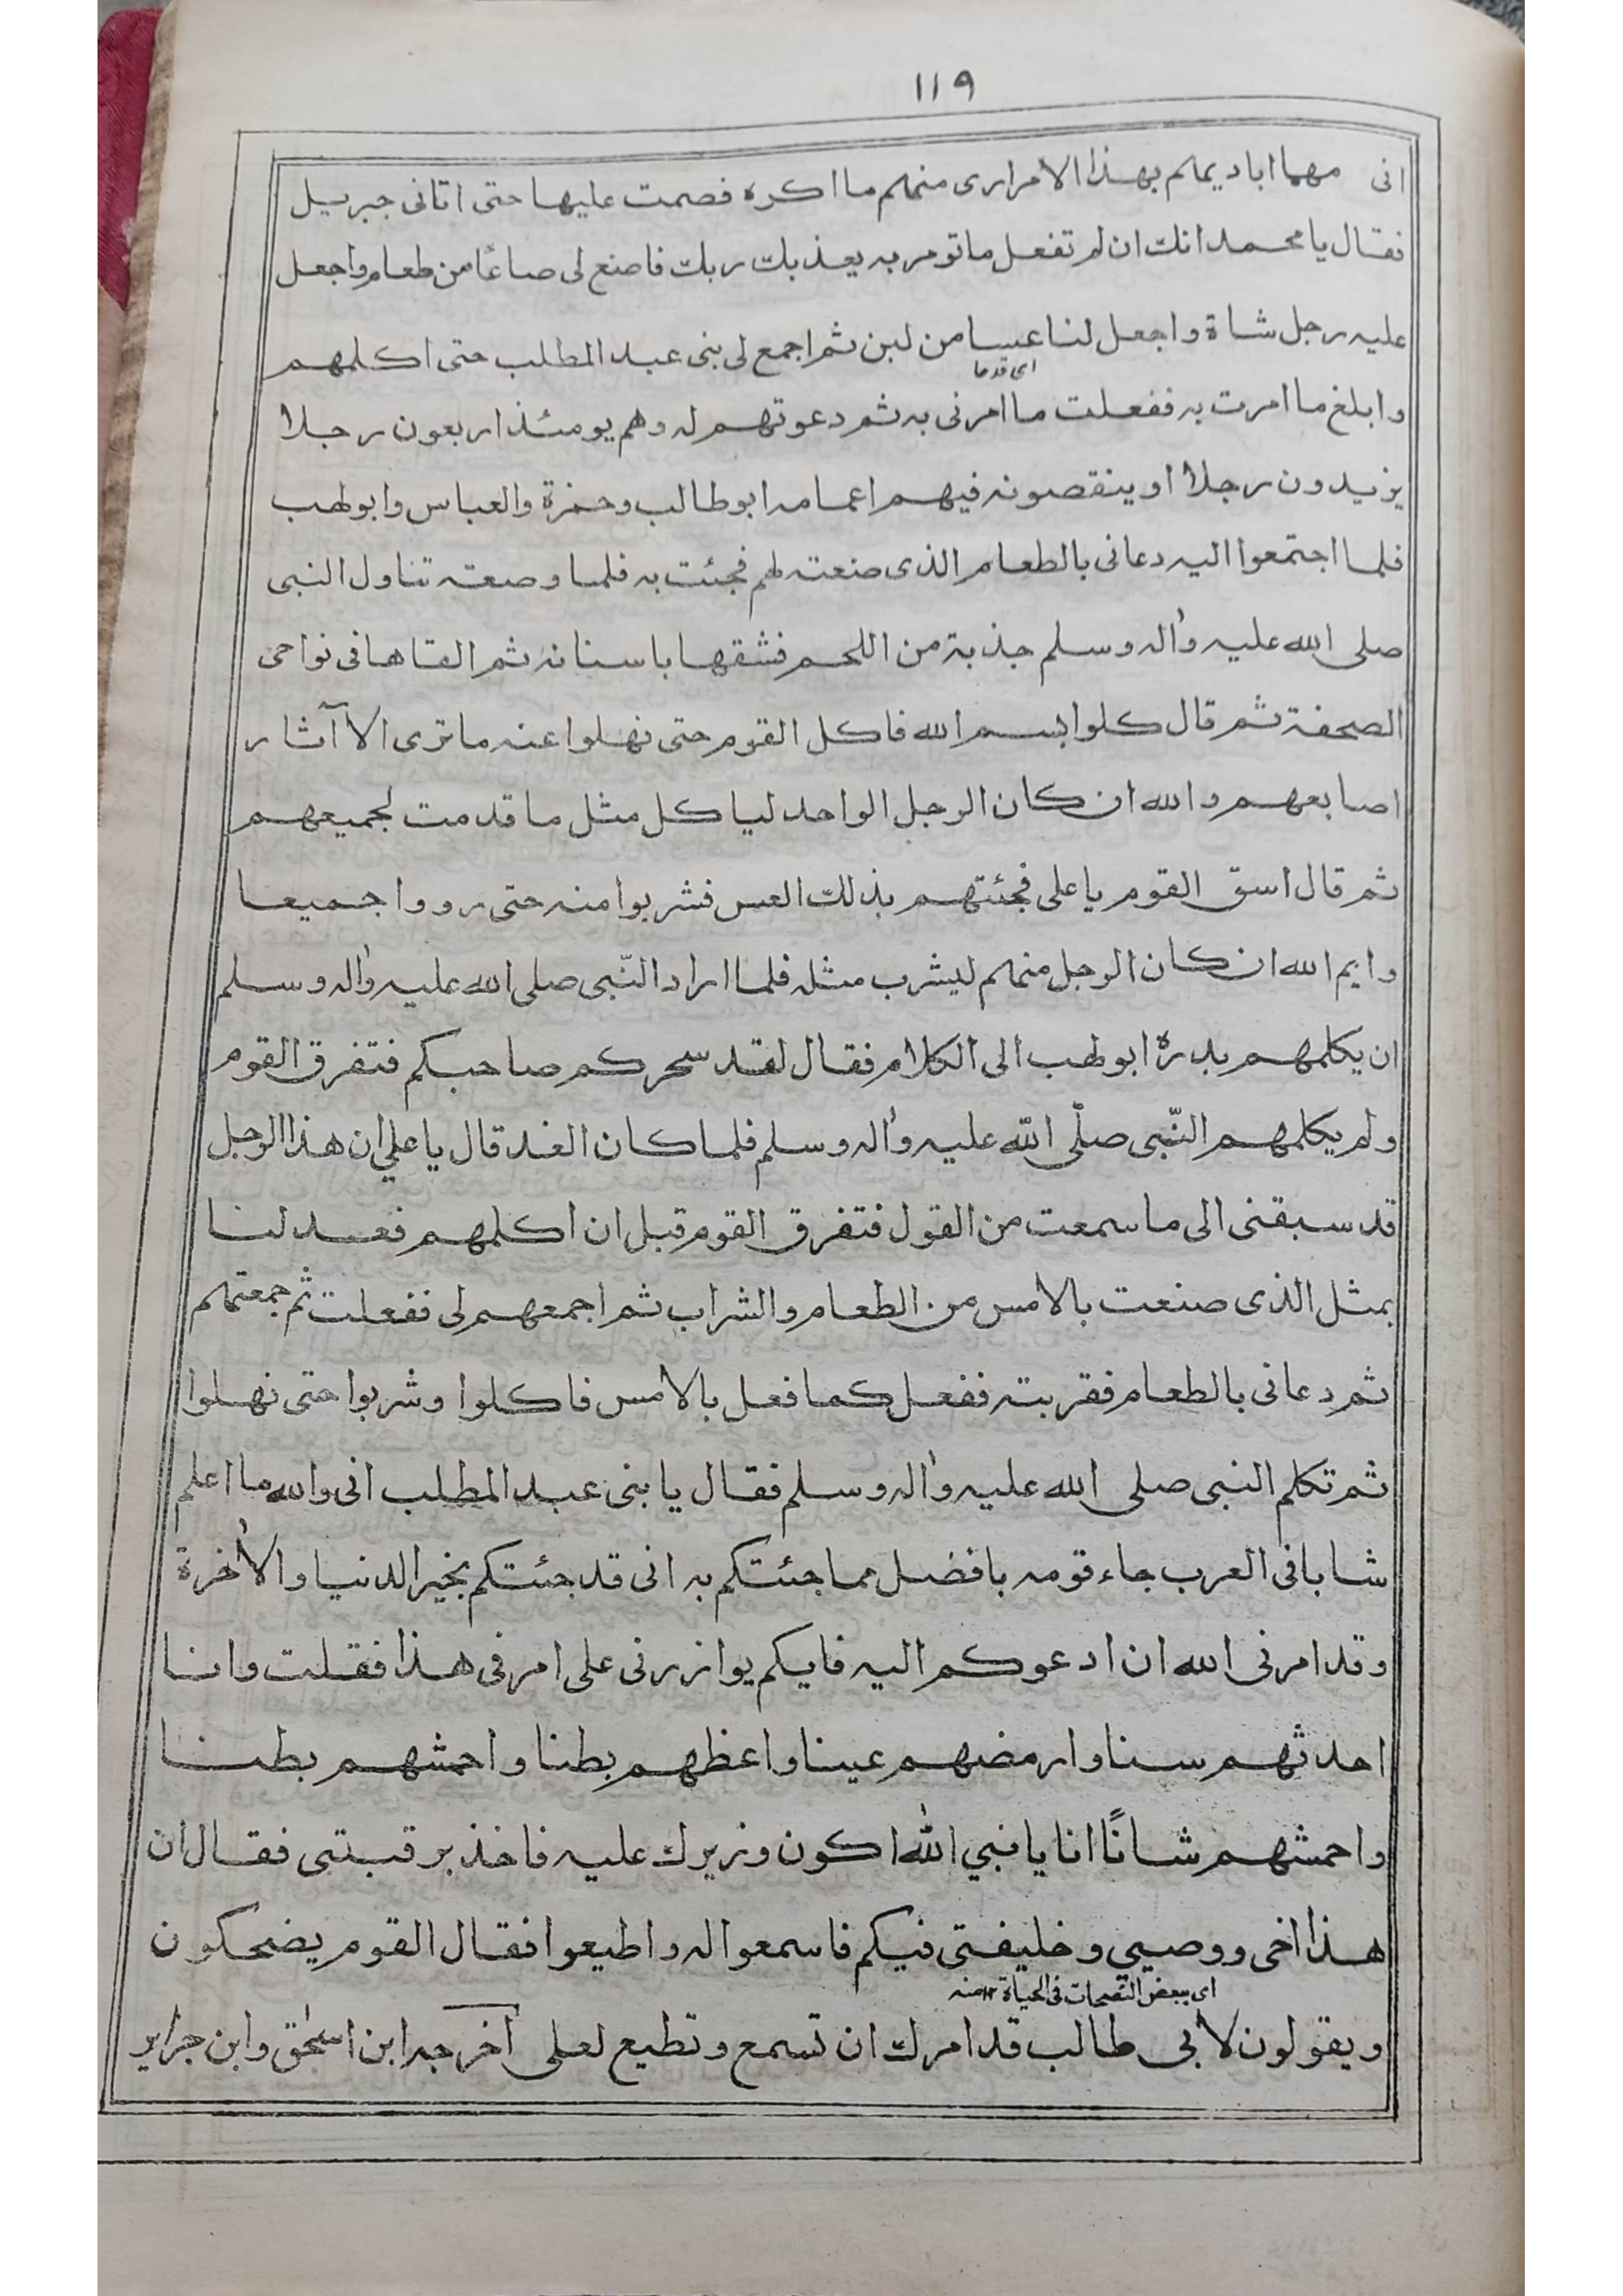 ١١٩
انى مهما اباديهم بهذا الامر ارى منهم ما اكره فصمت عليها حتى اتانى جبريل
فقال يا محمد انك ان لم تفعل ما تومر به يعذبك ربك فاصنع لى صاعًا من طعام واجعل
عليه رجل شاة واجعل لنا عسا من لبن ثم اجمع لى بنى عبد المطلب حتى اكلمهم
اى قدحا
وابلغ ما امرت به ففعلت ما امرنى به ثم دعوتهم له وهم يومئذ اربعون رجلا
يزيدون رجلا او ينقصونه فيهم اعمامه ابو طالب وحمزة والعباس وابو لهب
فلما اجتمعوا اليه دعانى بالطعام الذى صنعته لهم فجئت به فلما وضعته تناول النبى
صلى الله عليه واله وسلم جذبة من اللحم فشقها باسنانه ثم القاها فى نواحى
الصحفة ثم قال كلوا بسم الله فاكل القوم حتى نهلوا عنه ما ترى الا آثار
اصابعهم والله ان كان الرجل الواحد لياكل مثل ما قدمت لجميعهم
ثم قال اسق القوم يا على فجئتهم بذلك العس فشربوا منه حتى رووا جميعا
وايم الله ان كان الرجل منهم ليشرب مثله فلما اراد النّبى صلى الله عليه واله وسلم
ان يكلمهم بدره ابو لهب الى الكلام فقال لقد سحركم صاحبكم فتفرق القوم
ولم يكلمهم النّبى صلّى الله عليه واله وسلم فلما كان الغد قال يا علي ان هذا الرجل
قد سبقنى الى ما سمعت من القول فتفرق القوم قبل ان اكلمهم فعد لنا
بمثل الذى صنعت بالامس من الطعام والشراب ثم اجمعهم لى ففعلت ثم جمعتهم
ثم دعانى بالطعام فقربته ففعل كما فعل بالامس فاكلوا وشربوا حتى نهلوا
ثم تكلم النبى صلى الله عليه واله وسلم فقال يا بنى عبد المطلب انى والله ما اعلم
شابا فى العرب جاء قومه بافضل مما جئتكم به انى قد جئتكم بخير الدنيا والاخرة
وقد امرنى الله ان ادعوكم اليه فايكم يوازرنى على امرى هذا فقلت وانا
احدثهم سنا وارمضهم عينا واعظهم بطنا واحمشهم بطنا
واحمشهم شانًا انا يا نبي الله اكون وزيرك عليه فاخذ برقبتى فقال ان
هذا اخى ووصيى وخليفتى فيكم فاسمعوا له واطيعوا فقال القوم يضحكون
ويقولون لابى طالب قد امرك ان تسمع وتطيع لعلى اخرجه ابن اسحق وابن جرير